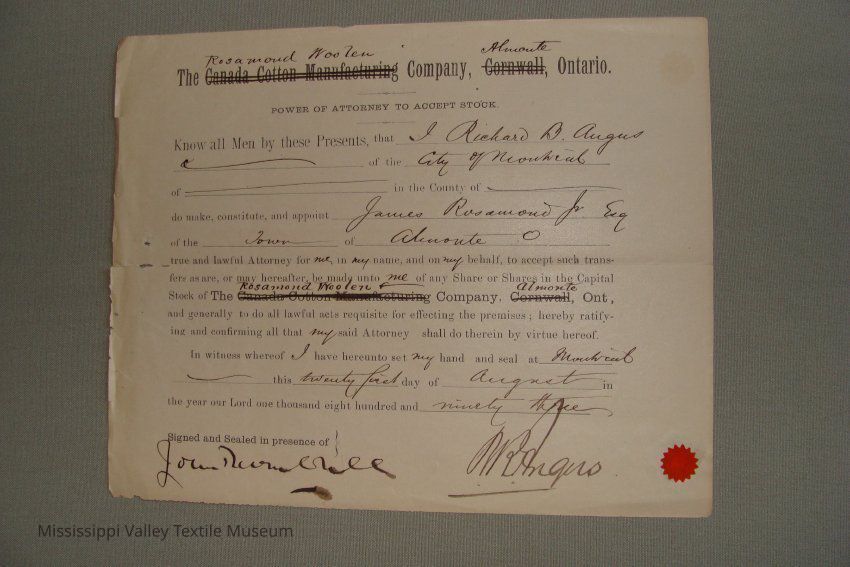 Rosamond Woolen Almonte
The Canada Cotton Manufacturing Company, Cornwall, Ontario.
POWER OF ATTORNEY TO ACCEPT STOCK.
Know all Men by these Presents, that I Richard B. Angus
of the City of Montreal
of in the County of
do make, constitute, and appoint James Rosamond Jr Esq
of the Town of Almonte O
true and lawful Attorney for me, in my name, and on my behalf, to accept such trans-
fers as are, or may hereafter, be made unto me of any Share or Shares in the Capital
Rosamond Woolen Almonte
Stock of The Canada Cotton Manufacturing Company, Cornwall, Ont,
and generally to do all lawful acts requisite for effecting the premises; hereby ratify-
ing and confirming all that my said Attorney shall do therein by virtue hereof.
In witness whereof I have hereunto set my hand and seal at Montreal
this twenty first day of August in
the year our Lord one thousand eight hundred and ninety three
Signed and Sealed in presence of }
John RBAngus
Mississippi Valley Textile Museum